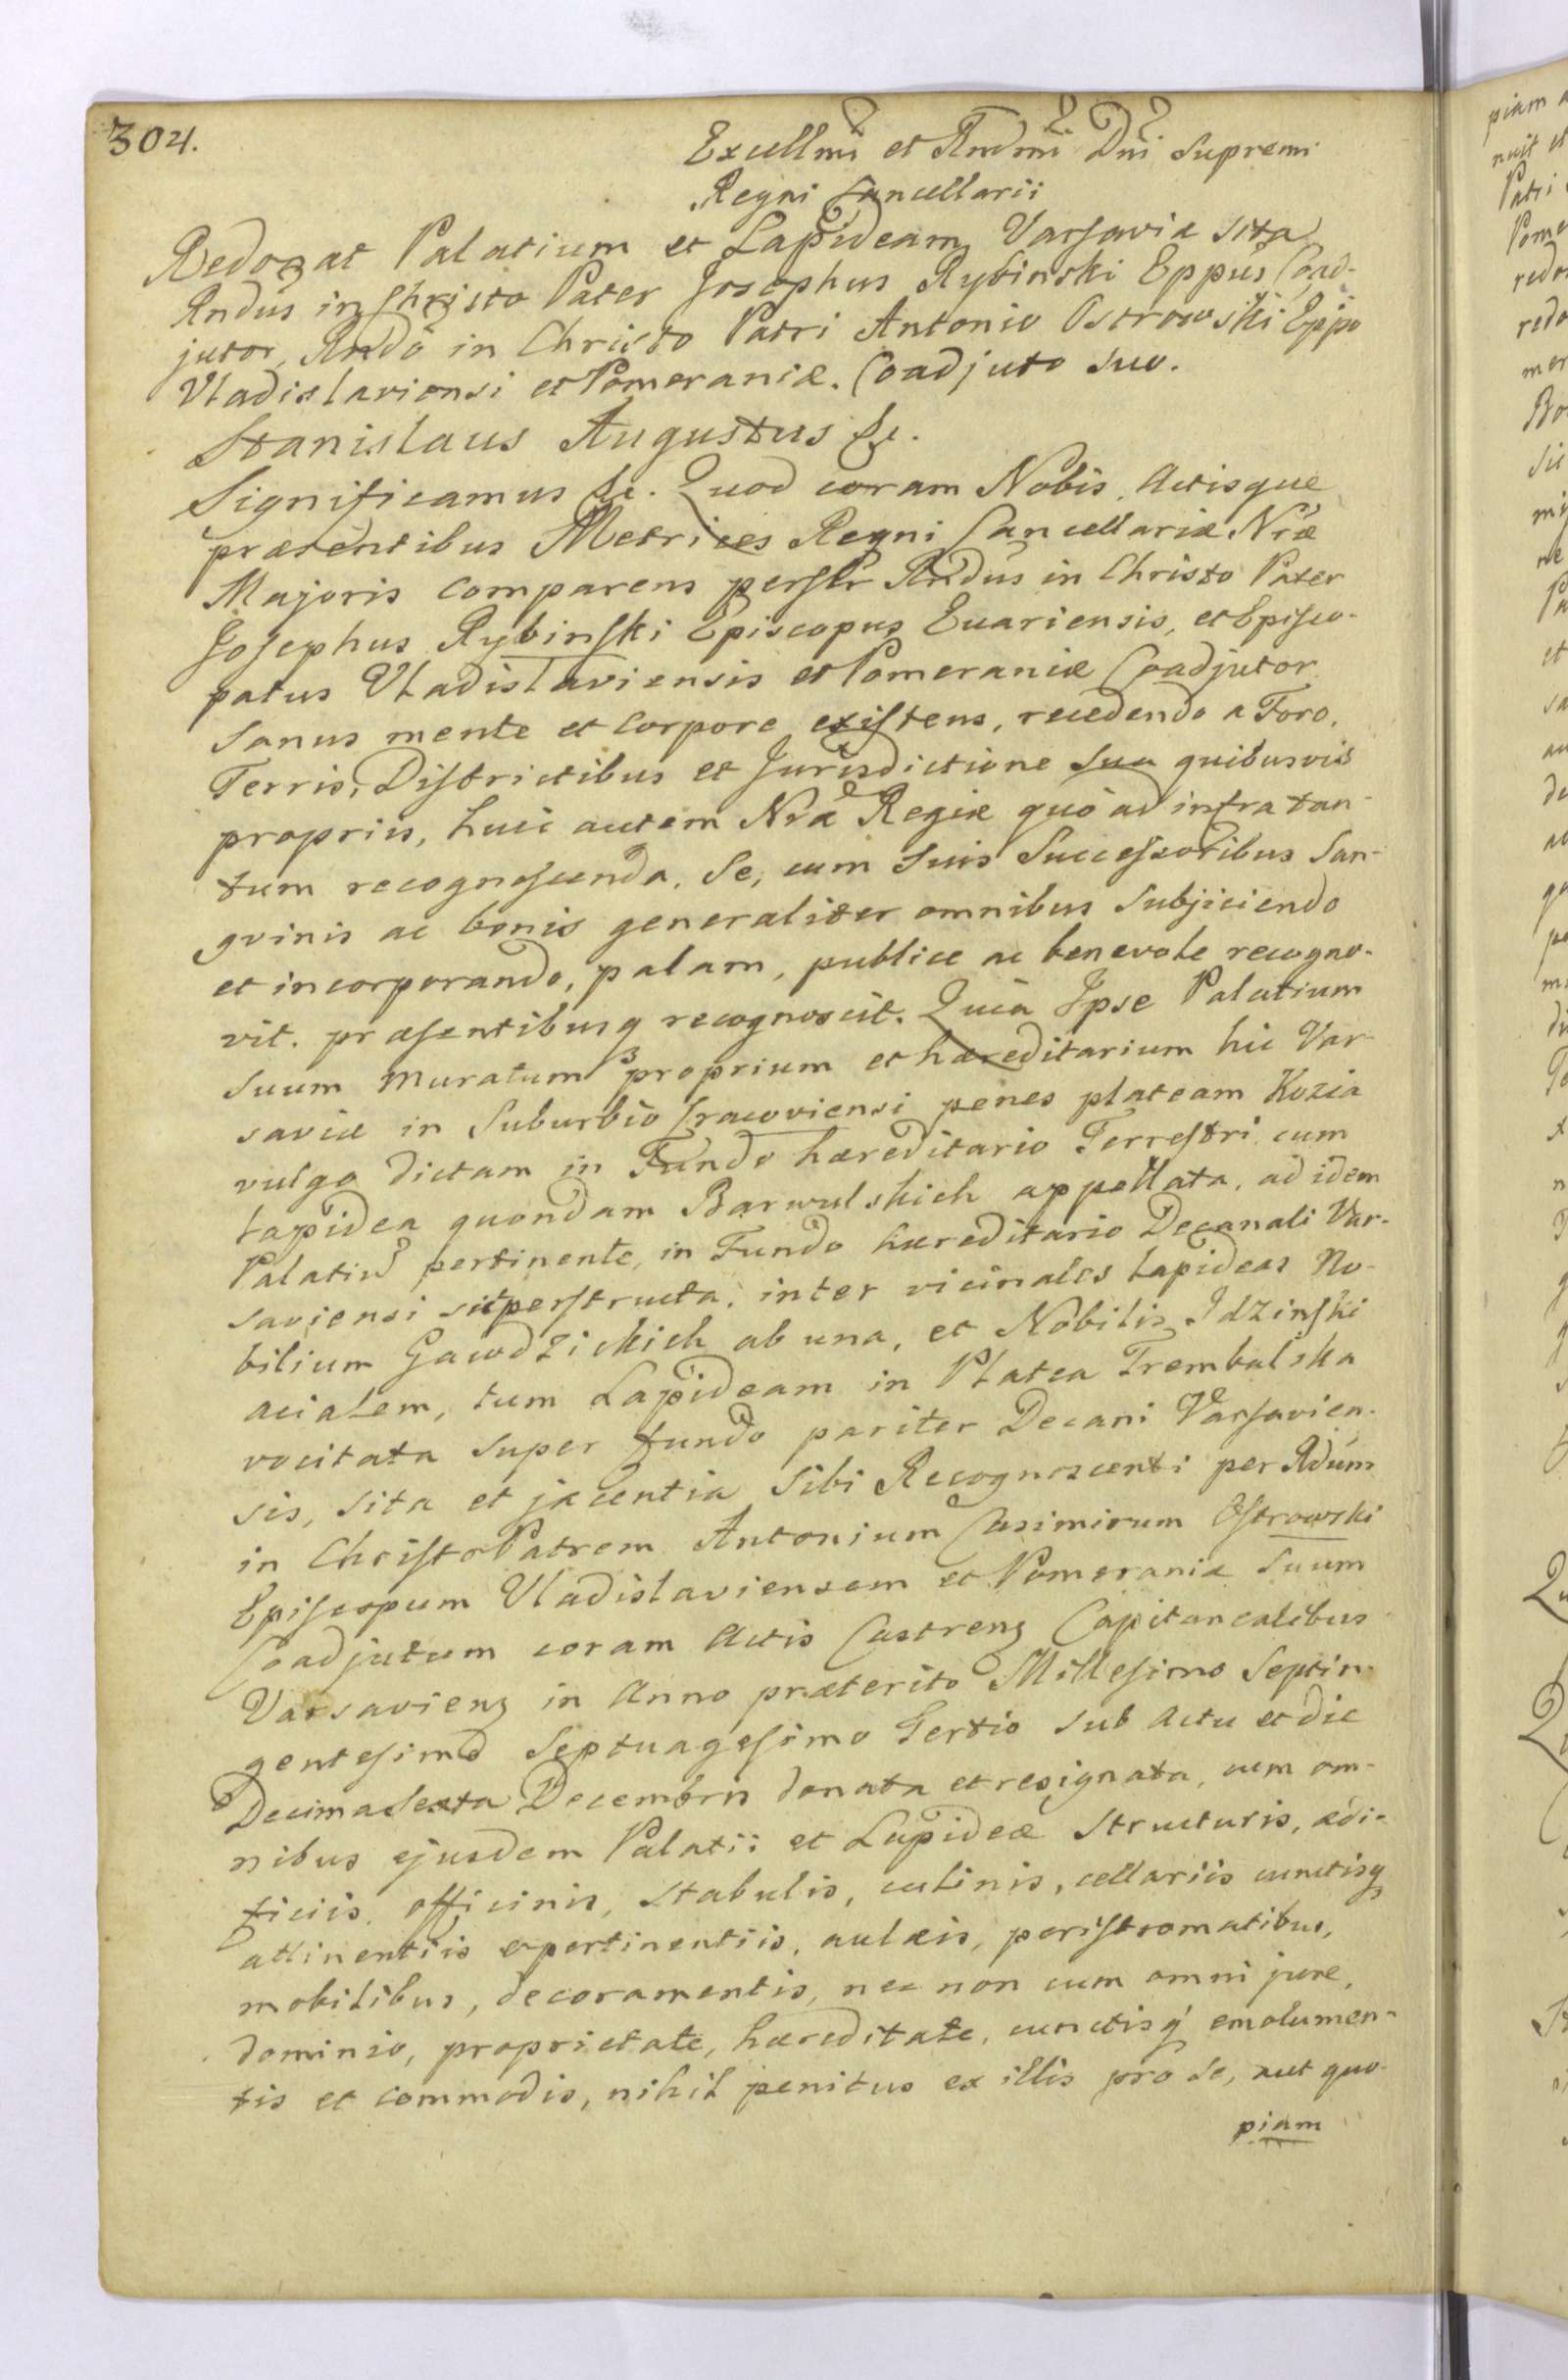 304.
Excellmi et Rndmi Dni Supremi
Regni Cancellarii
Redonat Palatium et Lapideam Varsaviæ sita
Rndus in Christo Pater Josephus Rybinski Eppus Coad-
jutor, Rndo in Christo Patri Antonio Ostrowski Eppo
Vladislaviensi et Pomeraniæ. Coadjuto suo.
Stanislaus Augustus &c.
Significamus &c. Quod coram Nobis, Actisque
præsentibus Metrices Regni Cancellariæ Nræ
Majoris comparens persltr Rndus in Christo Pater
Josephus Rybinski Episcopus Evariensis, et Episco-
patus Vladislaviensis et Pomeraniæ Coadjutor
Sanus mente et corpore existens, recedendo a Foro,
Terris, Districtibus et Jurisdictione sua quibusvis
propriis, huic autem Nræ Regiæ quo ad infra tan-
tum recognoscenda, Se, cum suis Successoribus San-
gvinis ac bonis generaliter omnibus Subjiciendo
et incorporando, palam, publice ac benevole recogno-
vit. præsentibusq recognoscit. Quia Ipse Palatium
suum muratum proprium et hæreditarium hic Var-
saviæ in Suburbio Cracoviensi penes plateam Kozia
vulgo dictam in Fundo hæreditario Terrestri cum
lapidea quondam Barwulskich appellata, ad idem
Palatium pertinente, in Fundo hæreditario Decanali Var-
saviensi superstructa, inter vicinales lapideas No-
bilium Gawdzickich ab una, et Nobilis Idzinski
acialem, tum Lapideam in Platea Trembalska
vocitata super fundo pariter Decani Varsavien-
sis, sita et jacentia Sibi Recognoscenti per Rdum
in Christo Patrem Antonium Casimirum Ostrowski
Episcopum Vladislaviensem et Pomeraniæ Suum
Coadjutum coram Actis Castrens Capitanealibus
Varsaviens in Anno præterito Millesimo Septin-
gentesimo Septuagesimo Tertio sub Actu et die
Decima Sexta Decembris donata et resignata, cum om-
nibus ejusdem Palatii et Lapideæ Structuris, ædi-
ficiis, officinis, Stabulis, culinis, cellariis cunctisq
attinentiis et pertinentiis, aulæis, peristromatibus,
mobilibus, decoramentis, nec non cum omni jure,
dominio, proprietate, hæreditate, cunctisq emolumen-
tis et commodis, nihil penitus ex illis pro se, aut quo-
piam